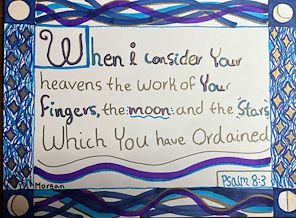 When i consider Your
heavens the work of Your
fingers, the moon and the Stars
Which You have Ordained
Psalm 8:3
Morgan